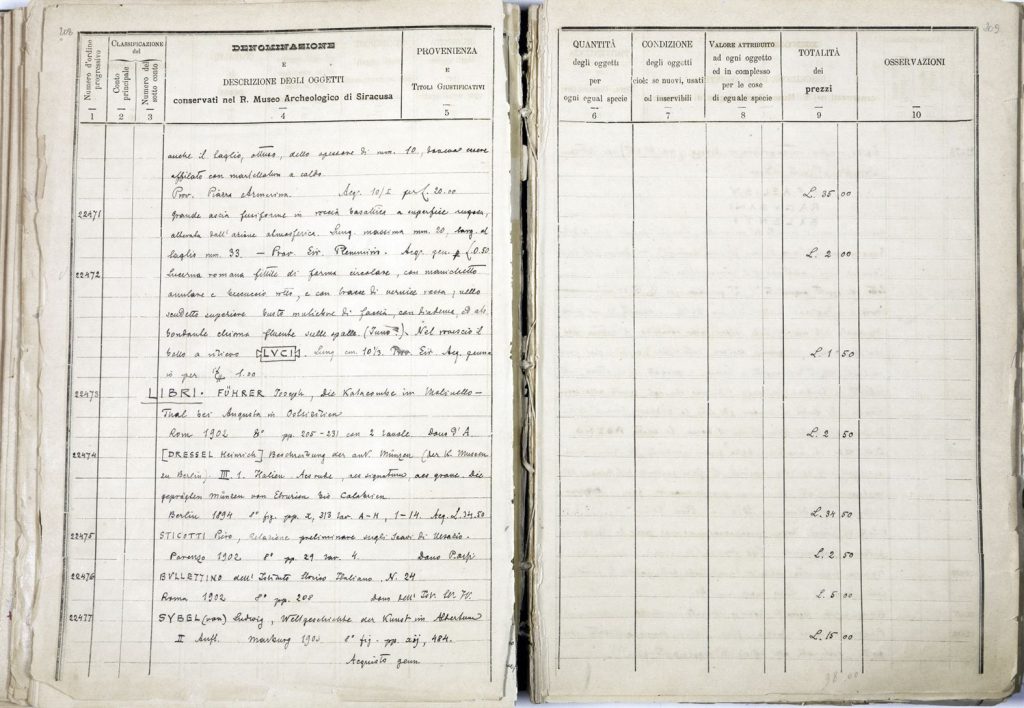 208
Numero d'ordine progressivo
CLASSIFICAZIONE del
Conto principale
Numero del sotto conto
DENOMINAZIONE
E
DESCRIZIONE DEGLI OGGETTI
conservati nel R. Museo Archeologico di Siracusa
PROVENIENZA
E
TITOLI GIUSTIFICATIVI
1 2 3 4 5
anche il taglio, ottuso, dello spessore di mm. 10,
affilato con martellatura a caldo.
Prov. Piazza Armerina. Acq. 10/I per £. 20.00
22471 Grande ascia fusiforme in roccia basaltica a superficie rugosa,
alterata dall'azione atmosferica. Lung. massima mm. 20, larg. al
taglio mm. 33. — Prov. Sir. Plemmirio. Acq. gen. p. £ 0.50
22472 Lucerna romana fittile di forma circolare, con manichetto
anulare e beccuccio rotto, e con tracce di vernice rossa; nello
scudetto superiore busto muliebre di faccia, con diadema, ed ab
bondante chioma fluente sulle spalle (Juno?). Nel rovescio il
bollo a rilievo LVCI. Lung. cm. 10 1/3. Prov. Sir. Acq. genna
io per £ 1.00
22473 LIBRI. FÜHRER Joseph, Die Katacombe im Molinello-
Thal bei Augusta in Ostsicilien
Rom 1902 8° pp. 205-231 con 2 tavole. Dono d' A.
22474 [DRESSEL Heinrich] Beschreibung der ant. Münzen (der K. Museen
zu Berlin). III. 1. Italien. Aes rude, aes signatum, aes grave. Die
geprägten Münzen von Etrurien bis Calabrien
Berlin 1894 8° fig. pp. X, 313 tav. A-H, 1-14. Acq. L. 34.50
22475 STICOTTI Piero, Relazione preliminare sugli scavi di
Parenzo 1902 8° pp. 29 tav. 4. Dono
22476 BVLLETTINO dell' Istituto Storico Italiano. N. 24
Roma 1902 8° pp. 208 Dono dell' Ist. St. It.
22477 SYBEL (von) Ludwig, Weltgeschichte der Kunst im Altertum
II Aufl. Marburg 1903 8° fig. pp. xij, 484.
Acquisto genn
309
QUANTITÀ
degli oggetti
per
ogni egual specie
CONDIZIONE
degli oggetti
cioè: se nuovi, usati
od inservibili
VALORE ATTRIBUITO
ad ogni oggetto
od in complesso
per le cose
di eguale specie
TOTALITÀ
dei
prezzi
OSSERVAZIONI
6 7 8 9 10
L. 35 00
L. 2 00
L. 1 50
L. 2 50
L. 34 50
L. 2 50
L. 5 00
L. 15 00
98.00